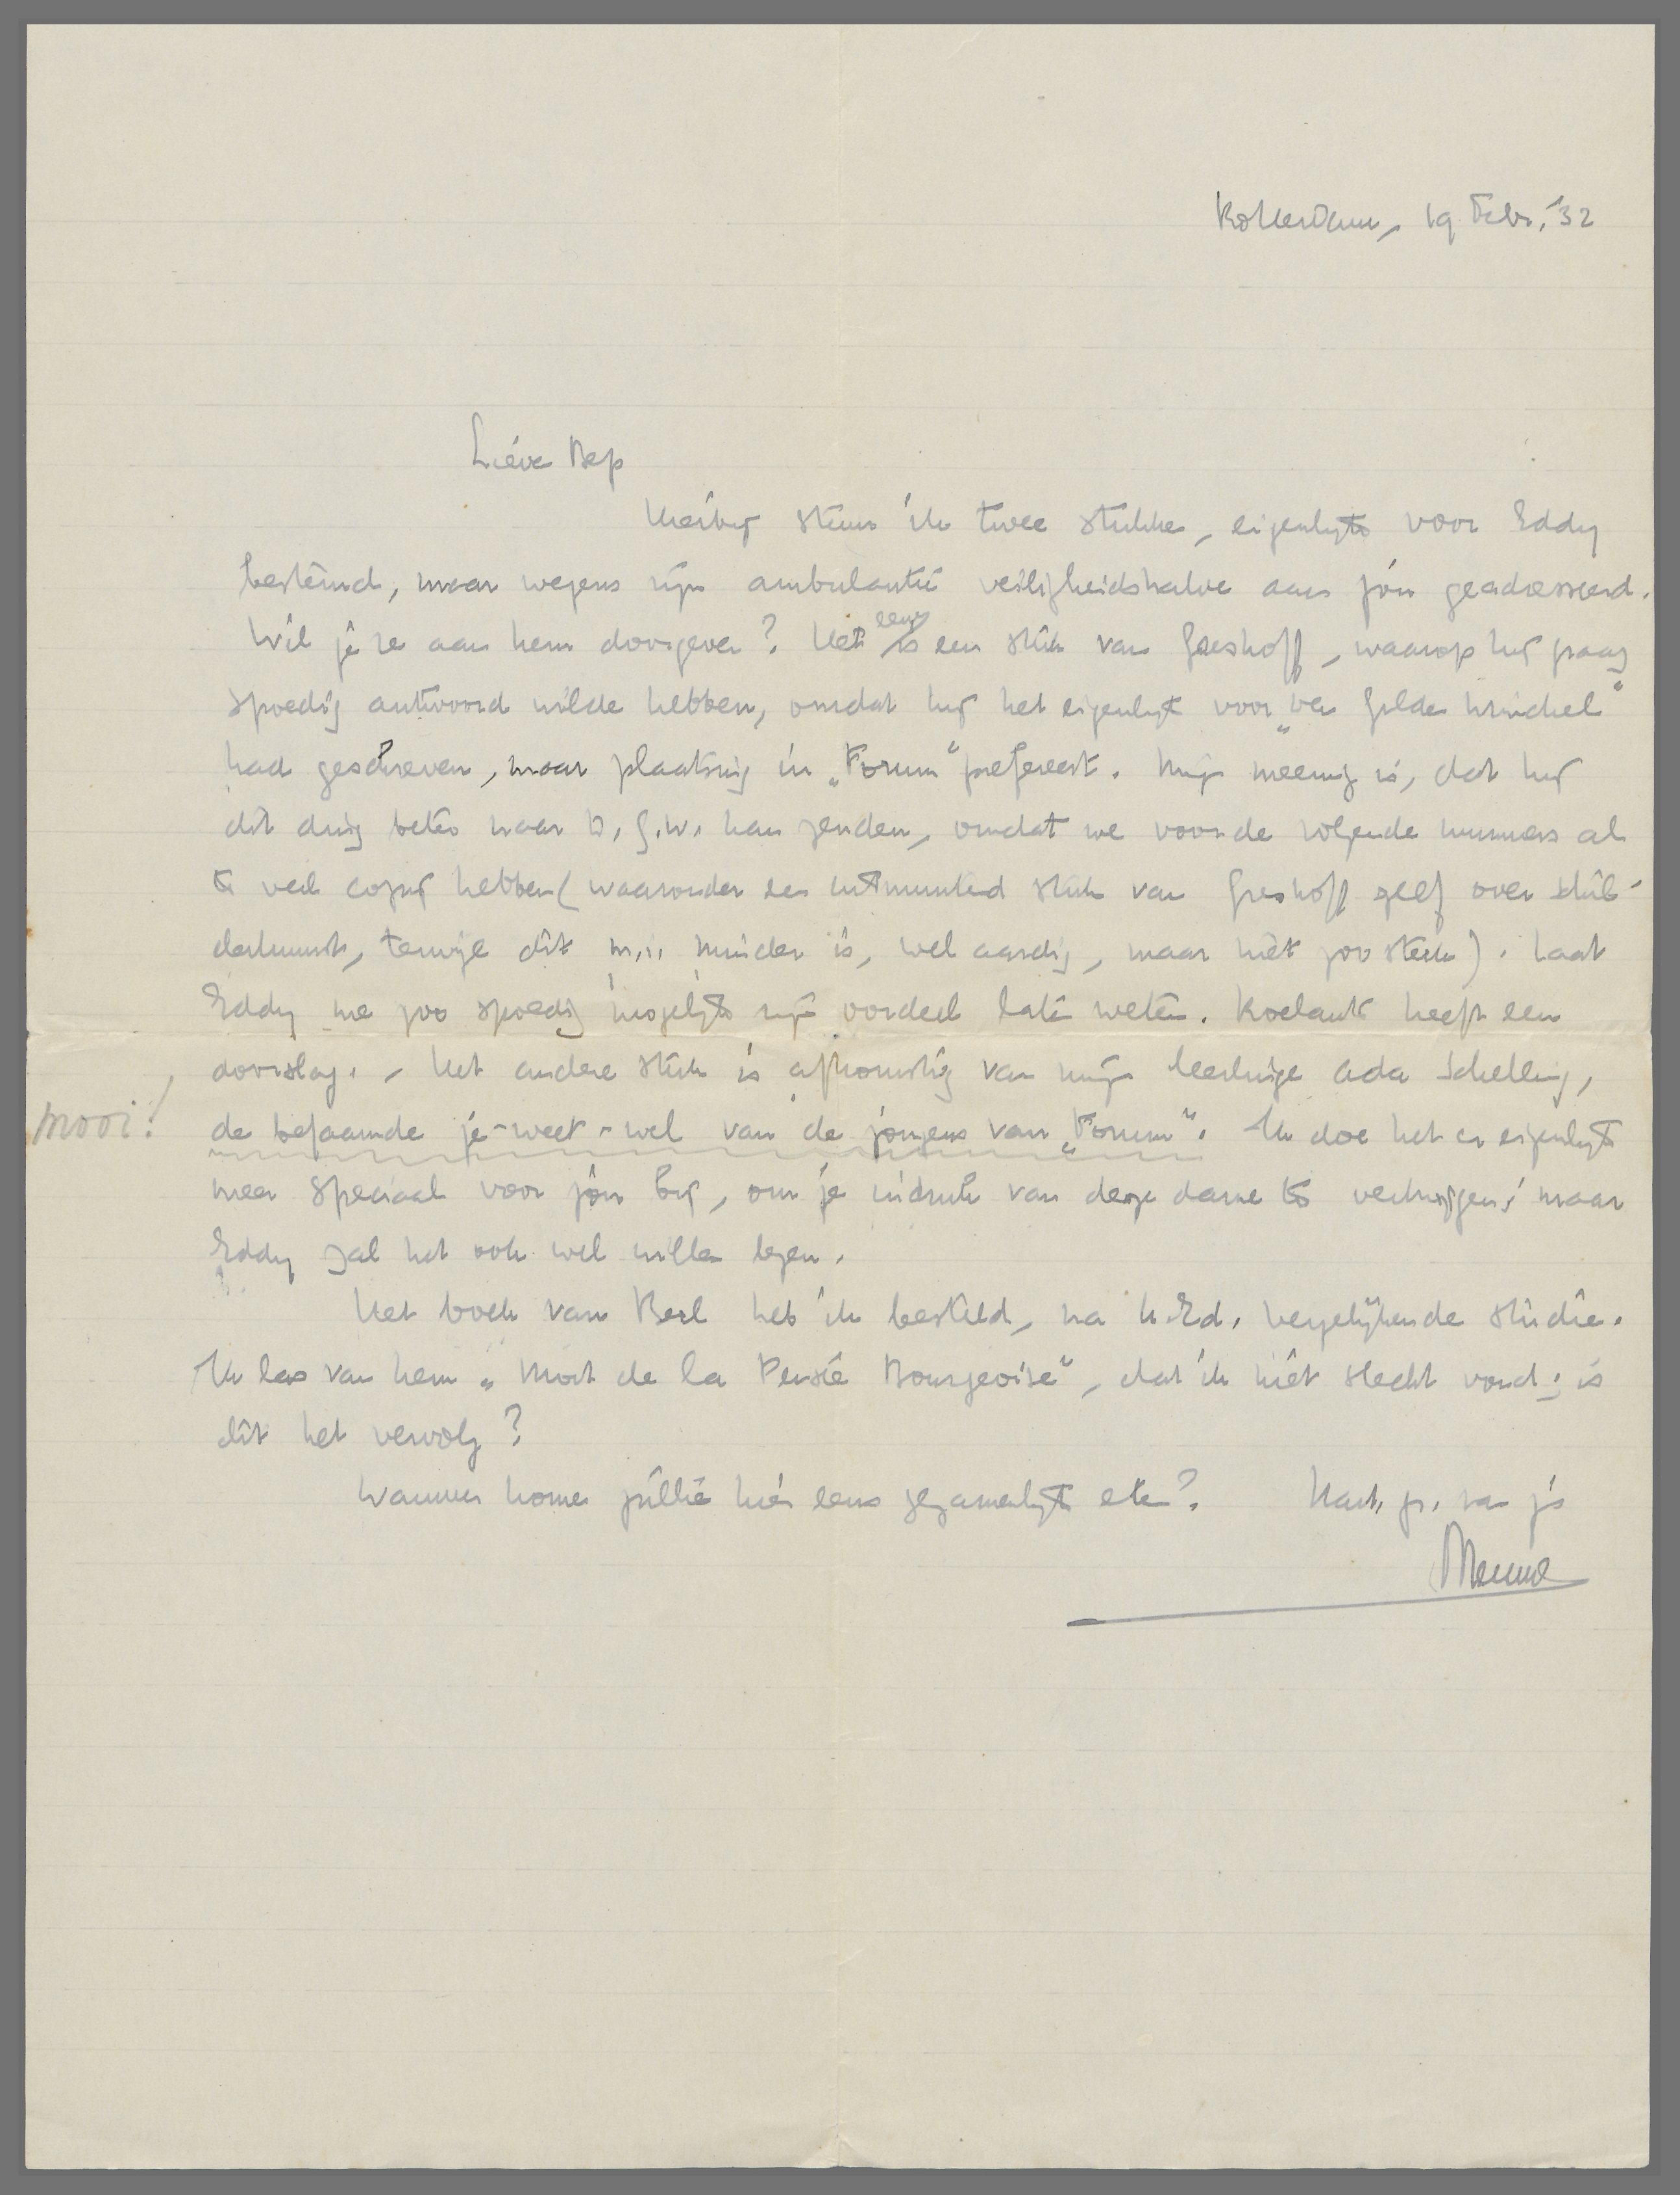 Rotterdam, 19 Febr. '32
Lieve Bep
Hierbij stuur ik twee stukken, eigenlijk voor Eddy
bestemd, maar wegens zijn ambulantie veiligheidshalve aan jou geadresseerd.
Wil je ze aan hem doorgeven? Het eene is een stuk van Greshoff, waarop hij graag
spoedig antwoord wilde hebben, omdat hij het eigenlijk voor „Den Gulden Winckel"
had geschreven, maar plaatsing in „Forum" prefereert. Mijn meening is, dat hij
dit ding beter naar D.G.W. kan zenden, omdat we voor de volgende nummers al
te veel copij hebben (waaronder een uitmuntend stuk van Greshoff zelf over schil-
derkunst, terwijl dit m.i. minder is, wel aardig, maar niet zoo sterk). Laat
Eddy me zoo spoedig mogelijk zijn oordeel laten weten. Roelants heeft een
doorslag. - Het andere stuk is afkomstig van mijn leerlinge Ada Schelling,
mooi! de befaamde je-weet-wel van de jongens van „Forum". Ik doe het er eigenlijk
meer speciaal voor jou bij, om je indruk van deze dame te verhoogen; maar
Eddy zal het ook wel willen lezen.
Het boek van Berl heb ik besteld, na U.Ed. vergelijkende studie.
Ik las van hem „Mort de la Pensée Bourgeoise", dat ik niet slecht vond; is
dit het vervolg?
Wanneer komen jullie hier eens gezamenlijk eten? Hart. gr. van je
Menno